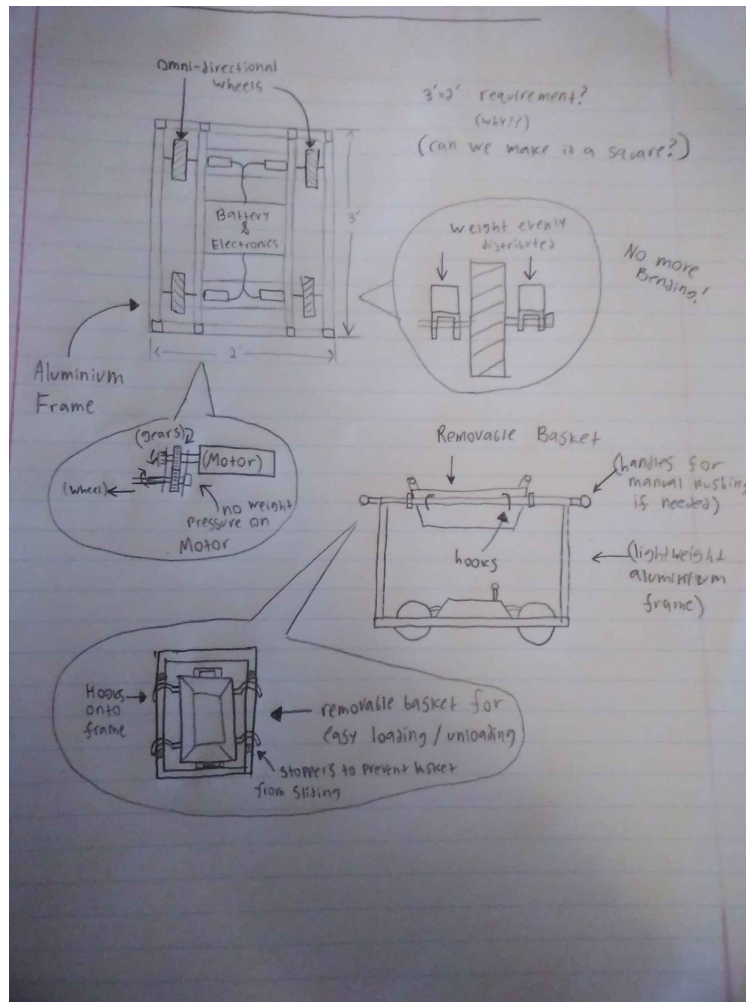 Omni-directional
wheels
3'x2' requirement?
(why??)
(can we make it a square?)
3'
Battery
&
Electronics
Weight evenly
distributed
No more
Bending!
2'
Aluminium
Frame
(gears)
(Motor)
(wheel)
no weight
pressure on
Motor
Removable Basket
(handles for
manual pushing
if needed)
hooks
(lightweight
aluminium
frame)
Hooks
onto
frame
removable basket for
easy loading/unloading
stoppers to prevent basket
from sliding